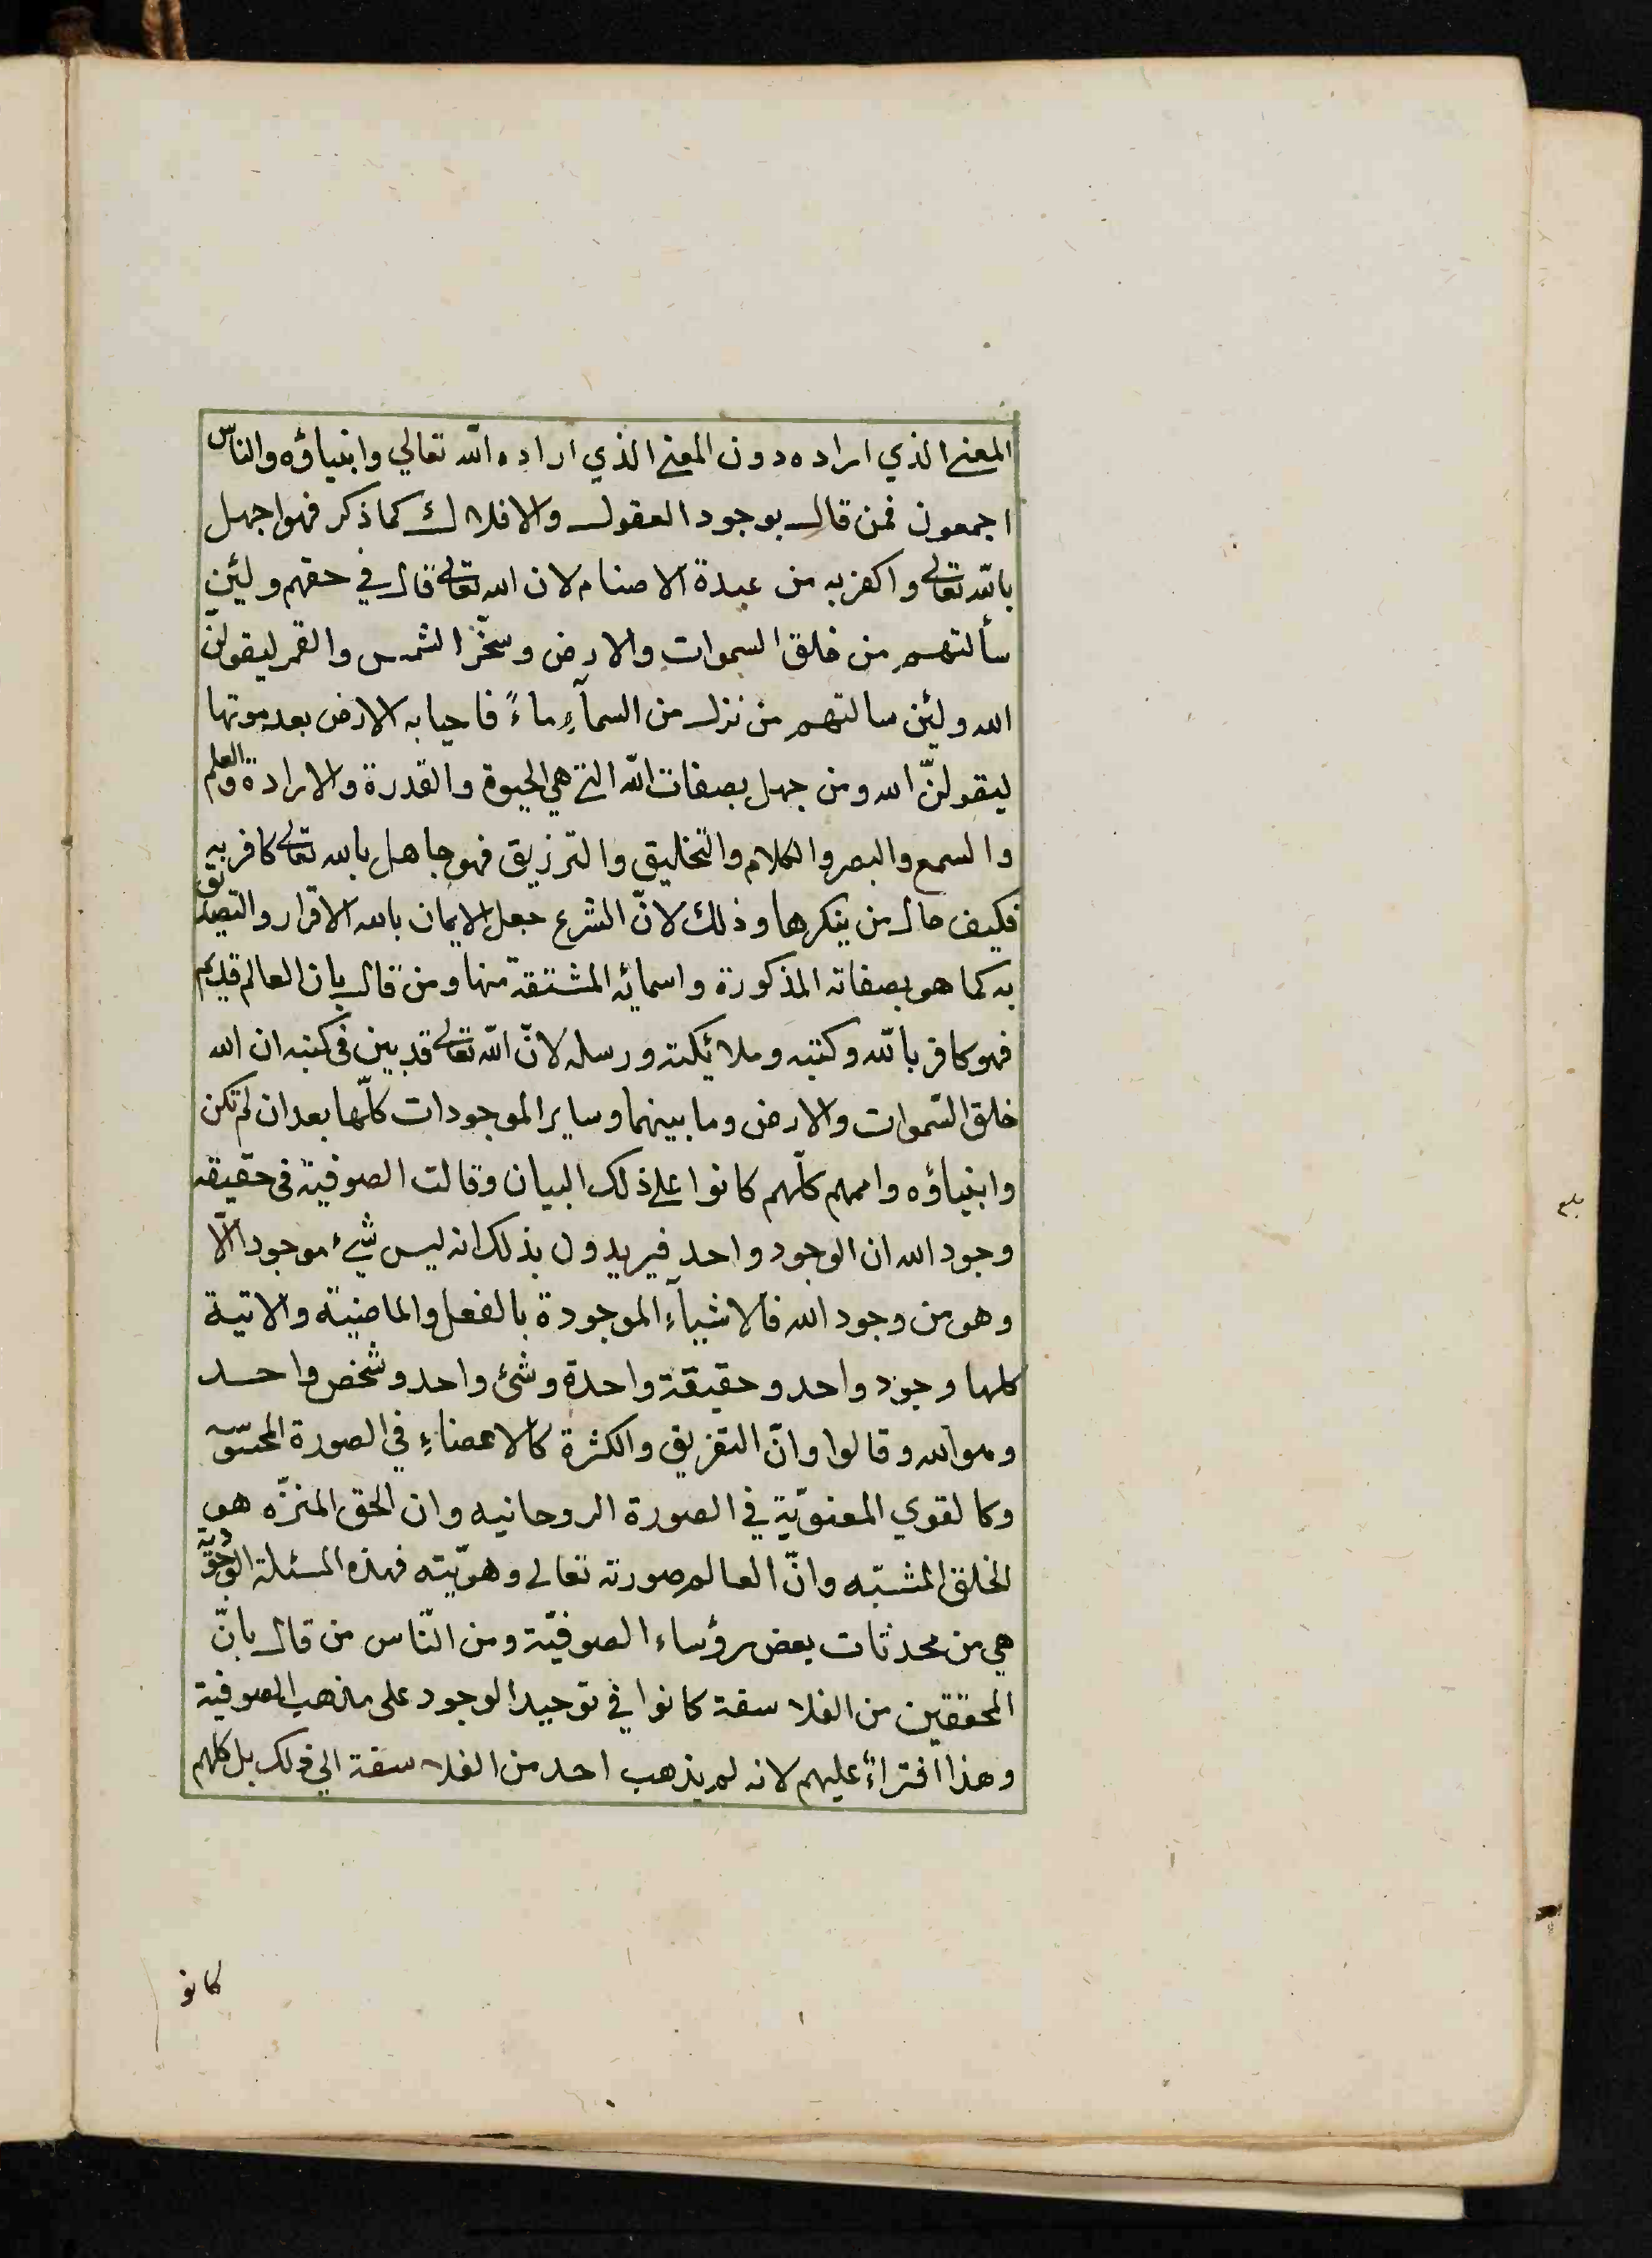 المعنى الذي اراده دون المعنى الذي اراده الله تعالي وانبياؤه والناس
اجمعون فمن قال بوجود العقول والافلاك كما ذكر فهو اجهل
بالله تعالى واكفر به من عبدة الاصنام لان الله تعالى قال في حقهم ولئن
سألتهم من خلق السموات والارض وسخّر الشمس والقمر ليقولنّ
الله ولئن سالتهم من نزل من السمآءِ ماءً فاحيا به الارض بعد موتها
ليقولنّ الله ومن جهل بصفات الله التى هي الحيوة والقدرة والارادة والعلم
والسمع والبصر والكلام والتخليق والترزيق فهو جاهل بالله تعالى كافر به
فكيف حال من ينكرها وذلك لانّ الشرع جعل الايمان بالله الاقرار والتصديق
به كما هو بصفاته المذكورة واسمائه المشتقة منها ومن قال بان العالم قديم
فهو كافر بالله وكتبه وملائيكته ورسله لانّ الله تعالى قد بين فى كتبه ان الله
خلق السّموات والارض وما بينهما وساير الموجودات كلّها بعد ان لم تكن
وانبياؤه واممهم كلّهم كانوا على ذلك البيان وقالت الصوفية فى حقيقة
وجود الله ان الوجود واحد فيريدون بذلك انه ليس شيء موجود الّا
وهو من وجود الله فالاشيآء الموجودة بالفعل والماضية والاتية
كلها وجود واحد وحقيقة واحدة وشئ واحد وشخص واحد
وهو الله وقالوا وانّ التفريق والكثرة كالاعضاءِ في الصورة المحسّوسة
وكالقوي المعنويّة في الصورة الروحانيه وان الحق المنزّه هو
الخلق المشبّه وانّ العالم صورته تعالى وهويّته فهذه المسئلة الوجودية
هي من محدثات بعض رؤساء الصوفيّة ومن النّاس من قال بانّ
المحققين من الفلاسفة كانوا في توحيد الوجود على مذهب الصوفية
وهذا افتراءٌ عليهم لانه لم يذهب احد من الفلاسفة الي ذلك بل كلهم
كانو